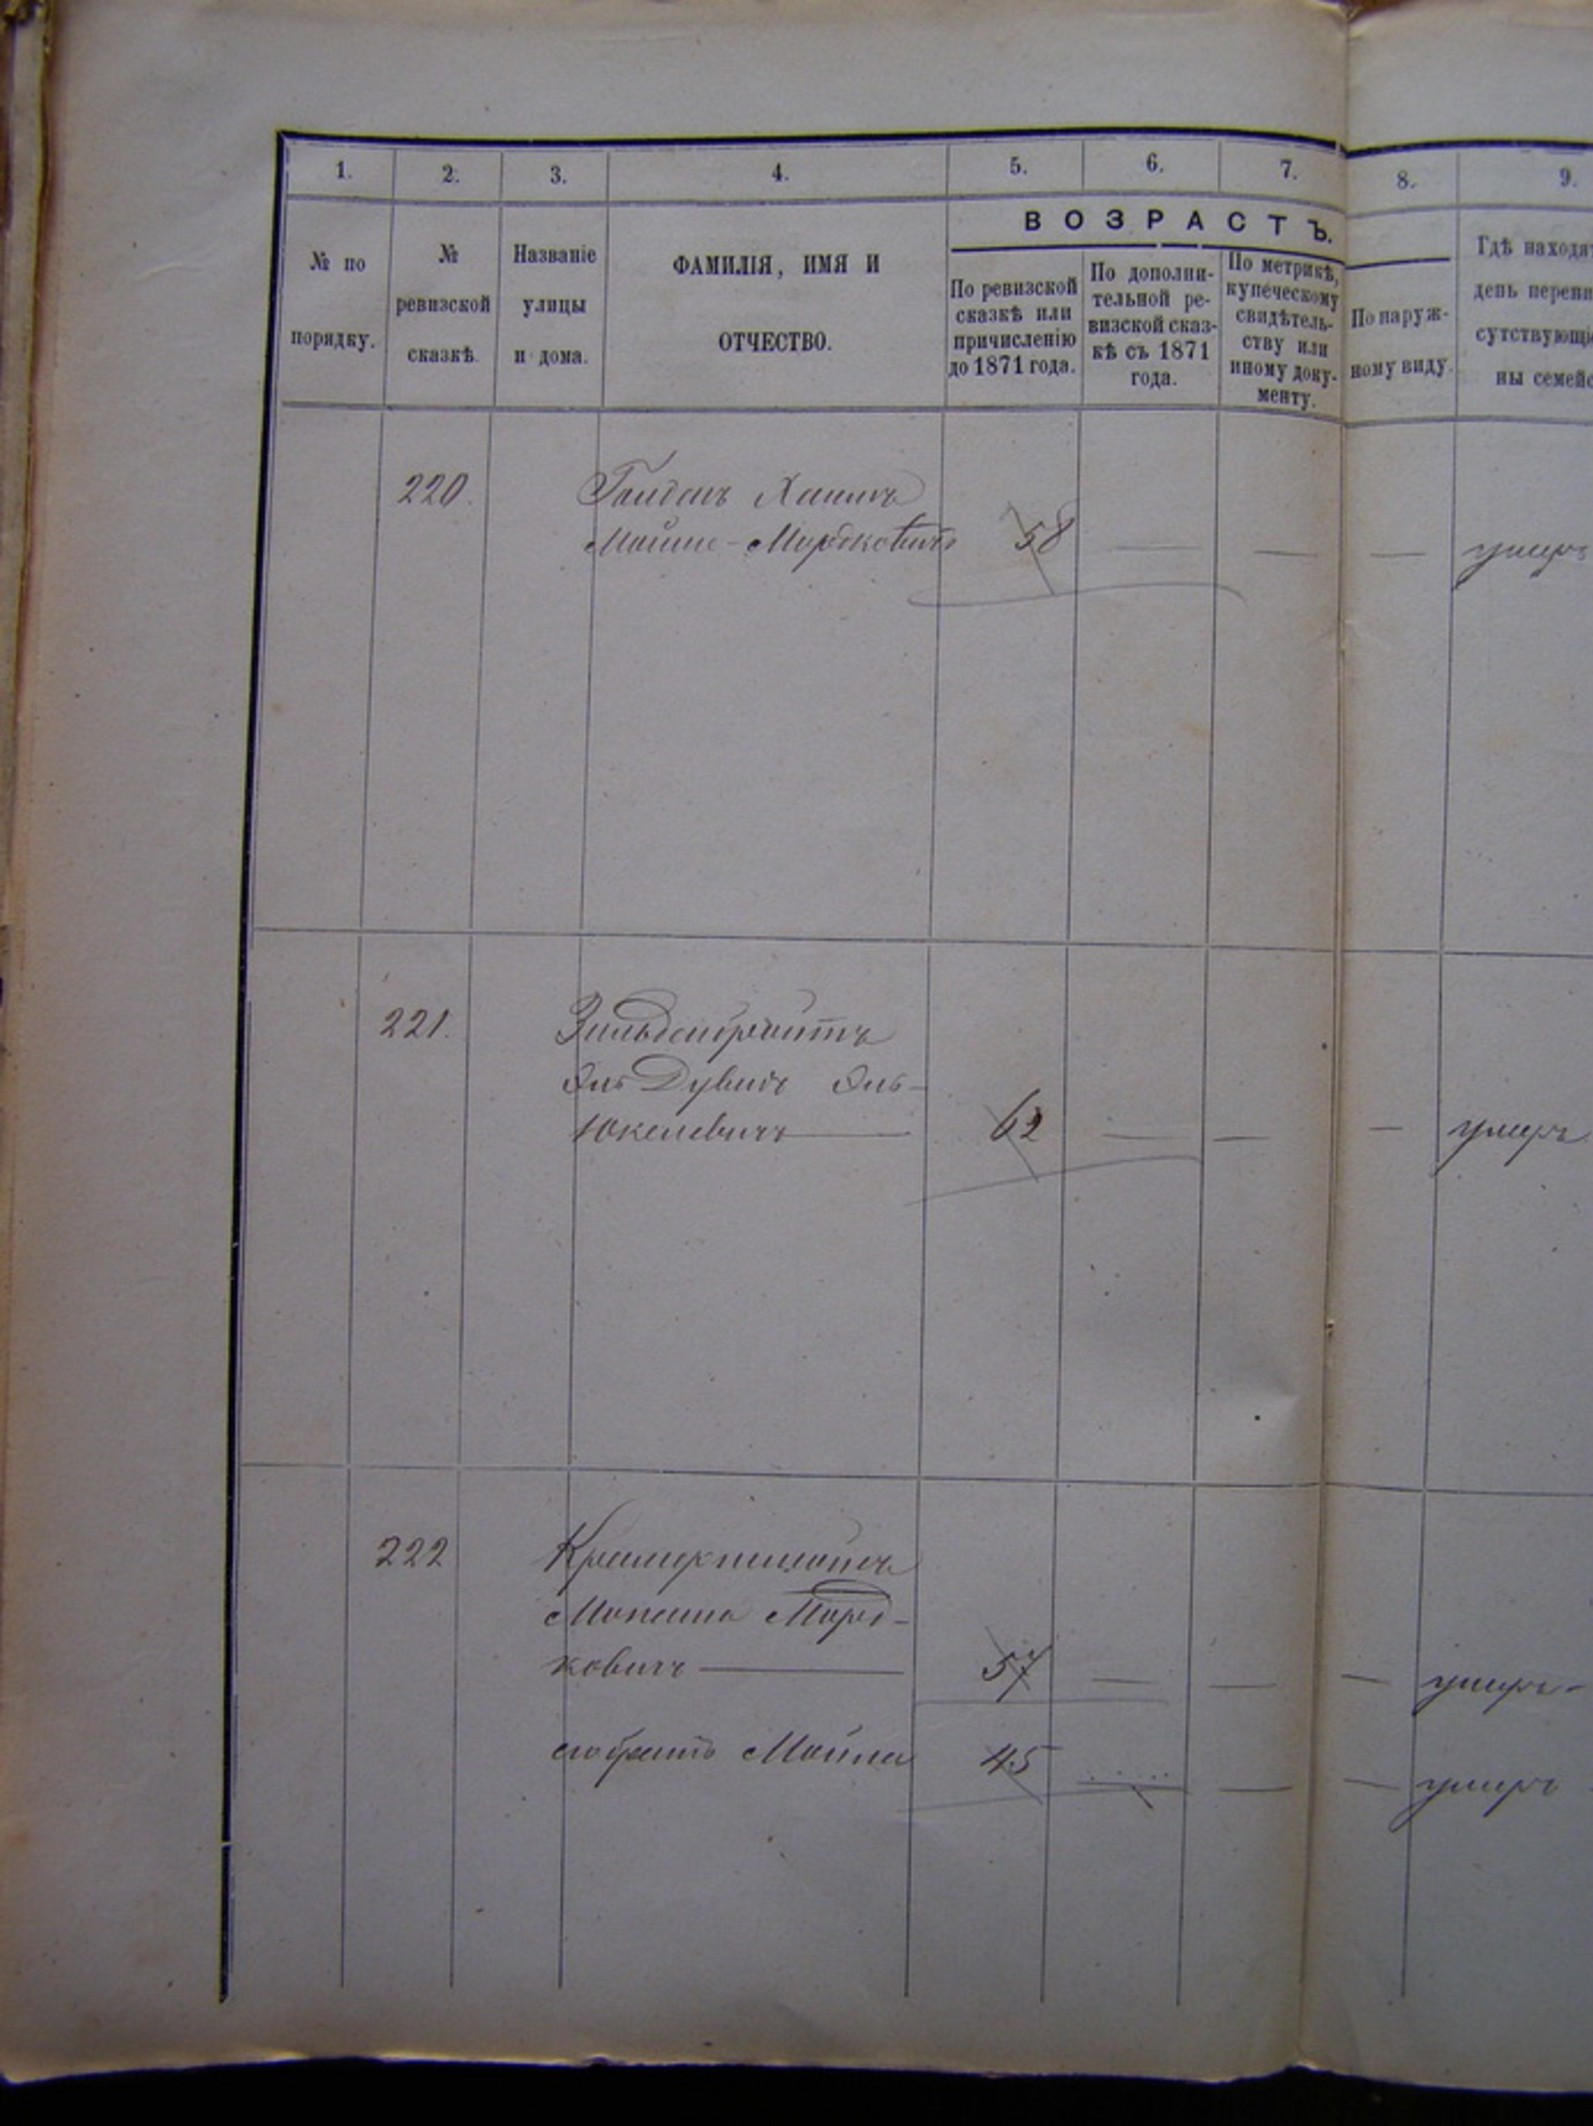 1. 2. 3. 4. 5. 6. 7. 8. 9.
ВОЗРАСТЪ.
№ по
порядку.
№
ревизской
сказкѣ.
Названіе
улицы
и дома.
ФАМИЛІЯ, ИМЯ И
ОТЧЕСТВО.
По ревизской
сказкѣ или
причисленію
до 1871 года.
По дополни-
тельной ре-
визской сказ-
кѣ съ 1871
года.
По метрикѣ,
купеческому
свидѣтель-
ству или
иному доку-
менту.
По наруж-
ному виду.
Гдѣ находя
день перепи
сутствующі
ны семейс
220. Хаимъ
Мошко-Мордковичъ 58 — — — умеръ
221.
Дувидъ
Юкелевичъ — 62 — — — умеръ
222
Морд-
ковичъ — 57 — — — умеръ
его братъ 45 — — — умеръ